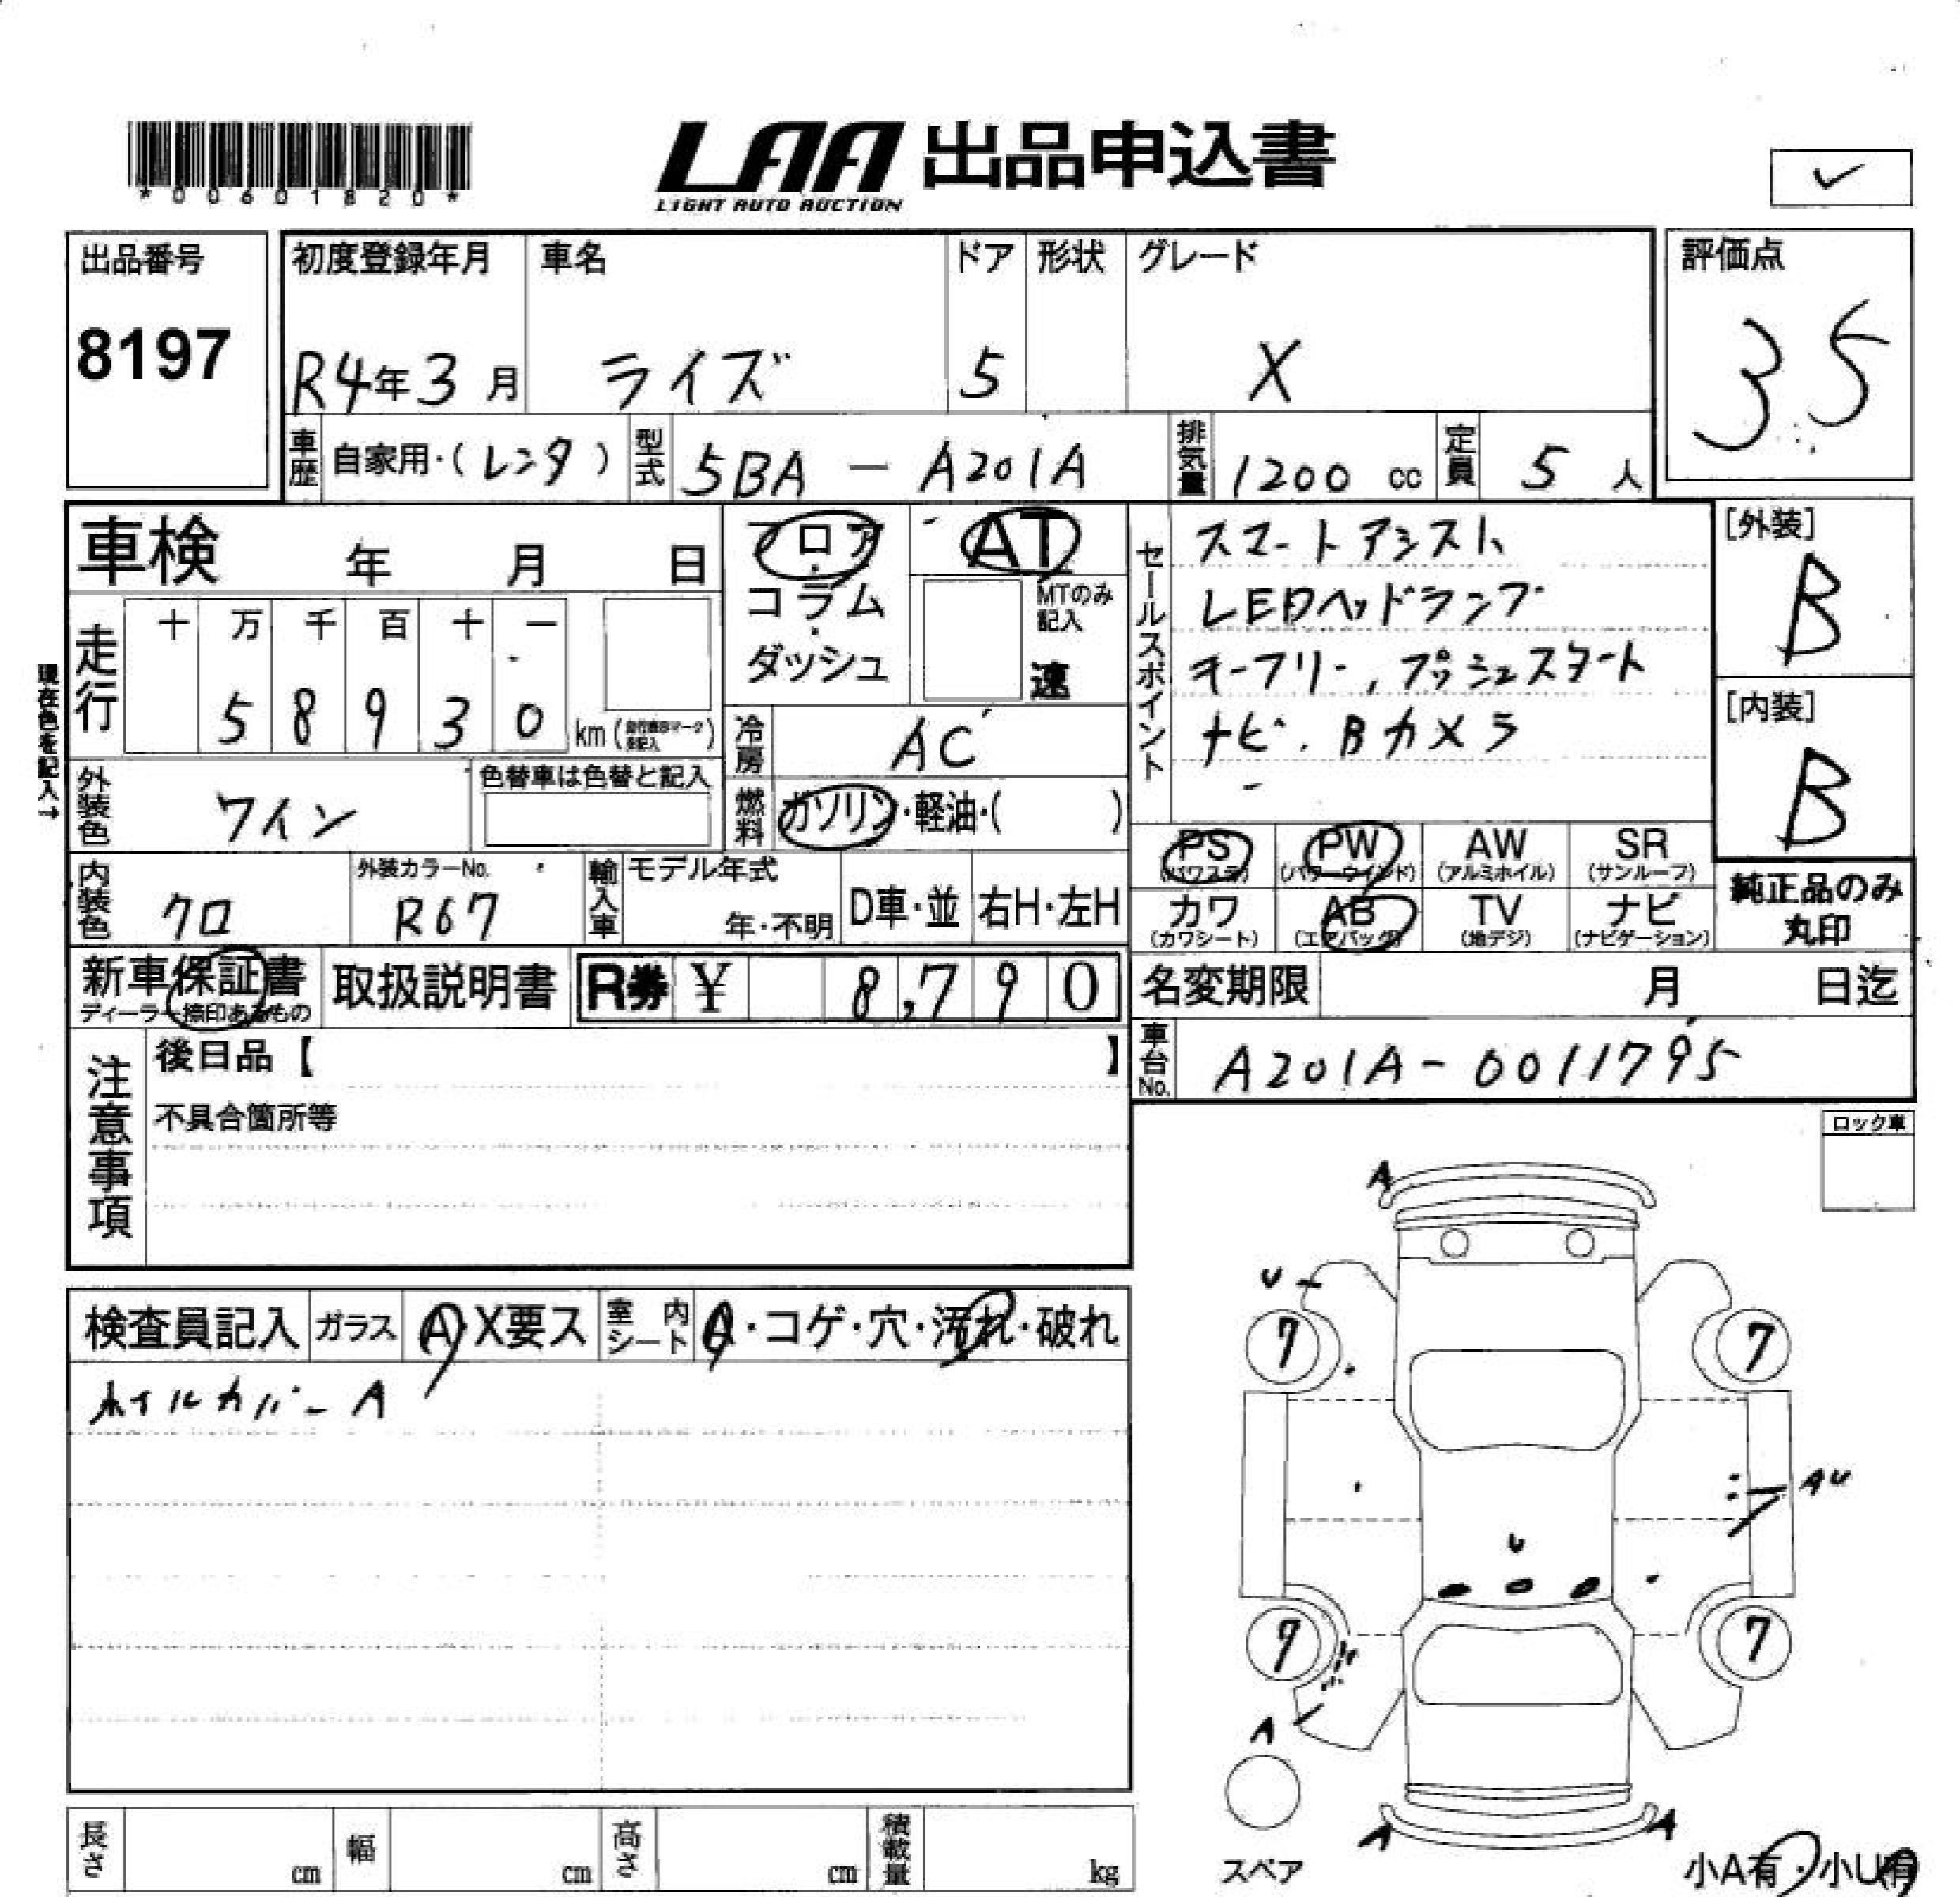 *00601820*
LAA 出品申込書
LIGHT AUTO AUCTION
出品番号
8197
初度登録年月 車名 ドア 形状 グレード
R4年3月 ライズ 5 X
評価点
3.5
車歴 自家用・(レンタ) 型式 5BA - A201A 排気量 1200 cc 定員 5 人
車検 年 月 日
フロア・コラム・ダッシュ
AT
MTのみ記入
速
セールスポイント
スマートアシスト、
LEDヘッドランプ
キーフリー, プッシュスタート
ナビ. Bカメラ
[外装]
B
[内装]
B
現在色を記入→
走行 十 万 千 百 十 一
5 8 9 3 0 km
冷房 AC
燃料 ガソリン・軽油・( )
外装色 ワイン
色替車は色替と記入
内装色 クロ
外装カラーNo.
R67
輸入車 モデル年式
年・不明 D車・並 右H・左H
PS (パワステ) PW (パワーウインド) AW (アルミホイル) SR (サンルーフ)
カワ (カワシート) AB (エアバッグ) TV (地デジ) ナビ (ナビゲーション)
純正品のみ
丸印
新車保証書
ディーラー捺印あるもの
取扱説明書 R券 ¥ 8,790
名変期限 月 日迄
車台No. A201A-0011795
注意事項
後日品【 】
不具合箇所等
ロック車
検査員記入 ガラス A・X要ス 室内シート A・コゲ・穴・汚れ・破れ
ホイルカバーA
A
U
7 7
AU
U
9 7
A
スペア
A A
小A有・小U有
長さ cm 幅 cm 高さ cm 積載量 kg